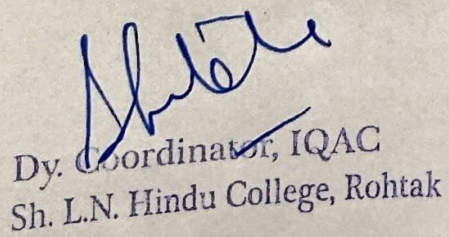 Dy. Coordinator, IQAC
Sh. L.N. Hindu College, Rohtak